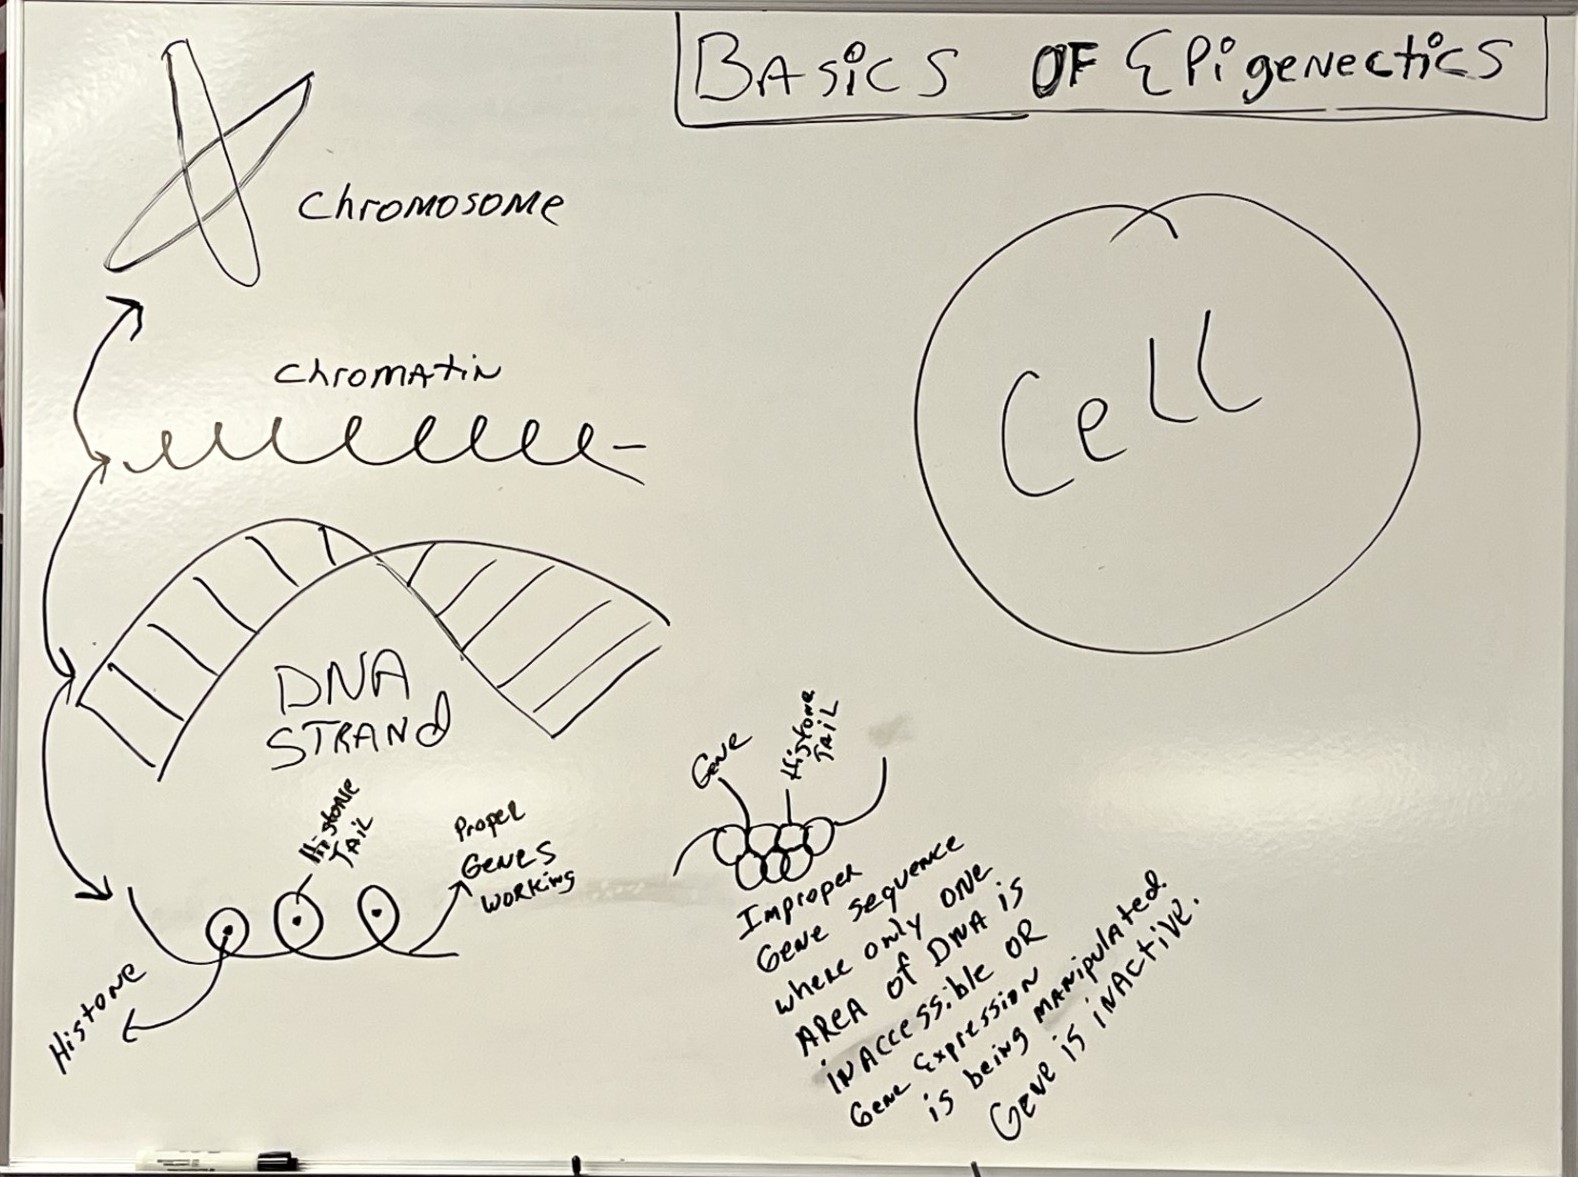 BASiCS OF EPigeNectics
ChROMOSOMe
ChROMATiN
Cell
DNA
STRANd
Histone
TAiL
PROPeR
GeNeS
WORKiNg
Histone
Gene
Histone
TAiL
Improper
Gene Sequence
where only ONe
AReA of DNA is
iNACCessible OR
Gene Expression
is being MANipulated.
Gene is iNACtive.